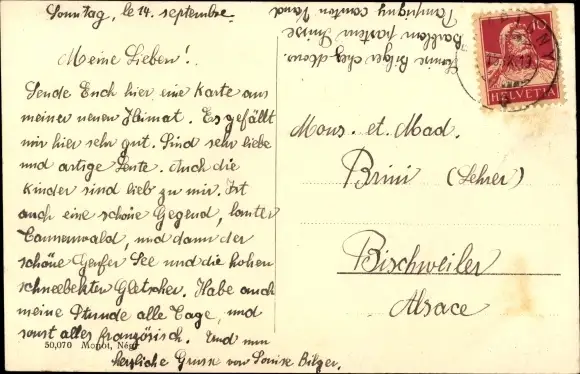 Sonntag, le 14. septembre.
Meine Lieben!
Sende Euch hier eine Karte aus
meiner neuen Heimat. Es gefällt
mir hier sehr gut. Sind sehr liebe
und artige Leute. Auch die
Kinder sind lieb zu mir. Ist
auch eine schöne Gegend, lauter
Tannenwald, und dann der
schöne Genfer See und die hohen
schneebekten Gletscher. Habe auch
meine Stunde alle Tage, und
sonst alles französisch. Und nun
herzliche Grüsse von Louise Bilger.
50,070 Monot, Nég.
Louise Bilger chez Mons.
Barblan pasteur Suisse
Pampigny canton Vaud
HELVETIA
Mons. et. Mad.
Brini (Lehrer)
Bischweiler
Alsace